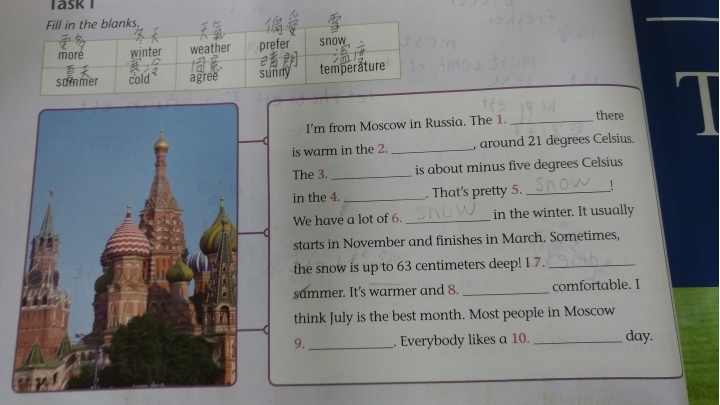 Task 1
Fill in the blanks.
更多 冬天 天氣 偏愛 雪
more winter weather prefer snow
夏天 寒冷 同意 晴朗 溫度
summer cold agree sunny temperature
I'm from Moscow in Russia. The 1. ____________ there
is warm in the 2. ____________, around 21 degrees Celsius.
The 3. ____________ is about minus five degrees Celsius
in the 4. ____________. That's pretty 5. snow!
We have a lot of 6. snow in the winter. It usually
starts in November and finishes in March. Sometimes,
the snow is up to 63 centimeters deep! I 7. ____________
summer. It's warmer and 8. ____________ comfortable. I
think July is the best month. Most people in Moscow
9. ____________. Everybody likes a 10. ____________ day.
T